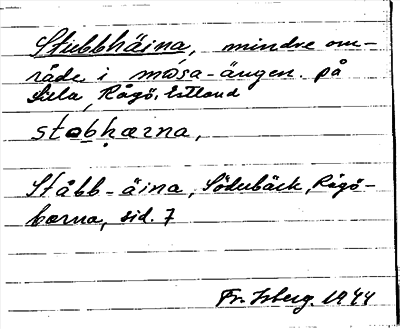 Stubbhäina, mindre om-
råde i mósa-ängen på
Lilla Rågö, Estland
stobhærna,
Ståbb-äina, Söderbäck, Rågö-
borna, sid. 7
Fr. Isberg. 1944